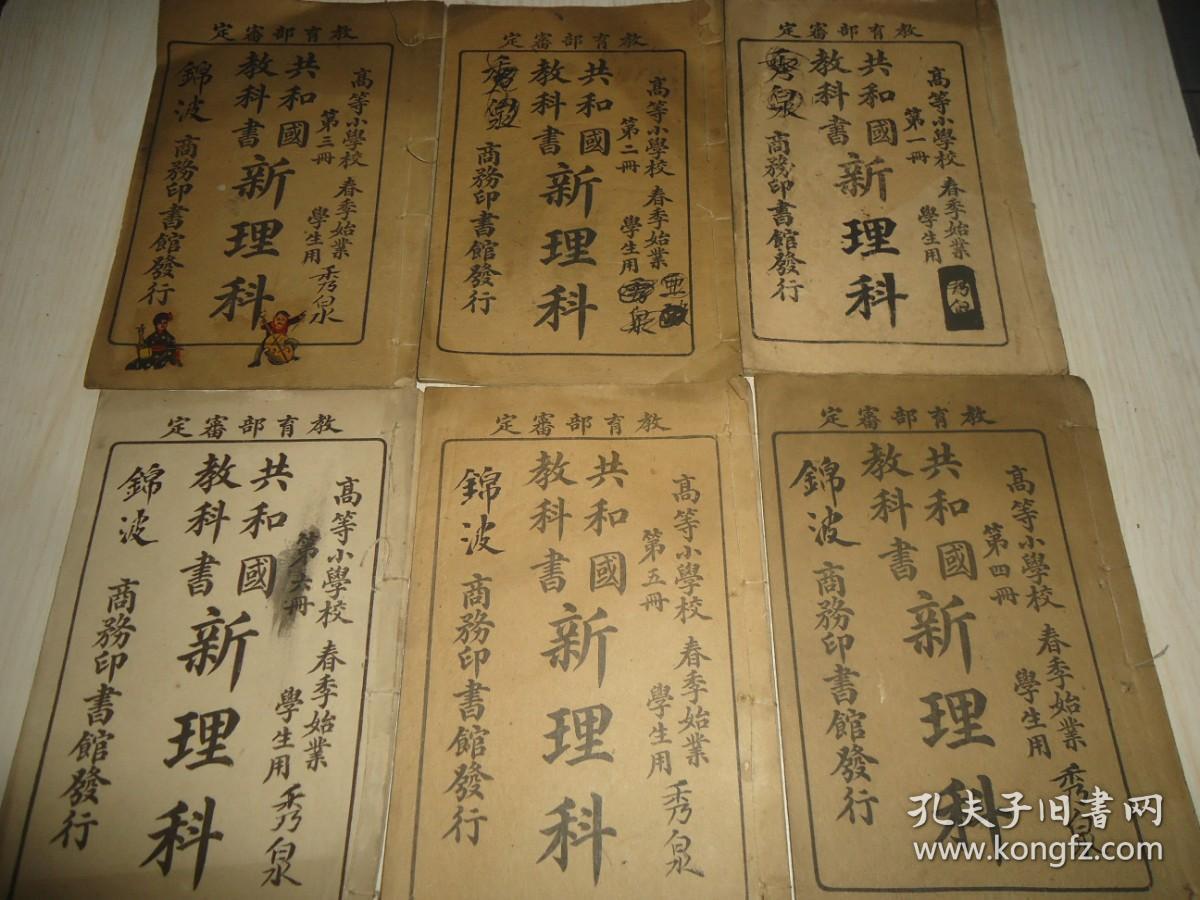 教育部審定
高等小學校 春季始業
第三冊 學生用
秀泉
共和國
教科書
新理科
錦波
商務印書館發行
教育部審定
高等小學校 春季始業
第二冊 學生用
秀泉
共和國
教科書
新理科
秀泉
商務印書館發行
教育部審定
高等小學校 春季始業
第一冊 學生用
共和國
教科書
新理科
秀泉
商務印書館發行
教育部審定
高等小學校 春季始業
第六冊 學生用
秀泉
共和國
教科書
新理科
錦波
商務印書館發行
教育部審定
高等小學校 春季始業
第五冊 學生用
秀泉
共和國
教科書
新理科
錦波
商務印書館發行
教育部審定
高等小學校 春季始業
第四冊 學生用
秀泉
共和國
教科書
新理科
錦波
商務印書館發行
孔夫子旧书网
www.kongfz.com